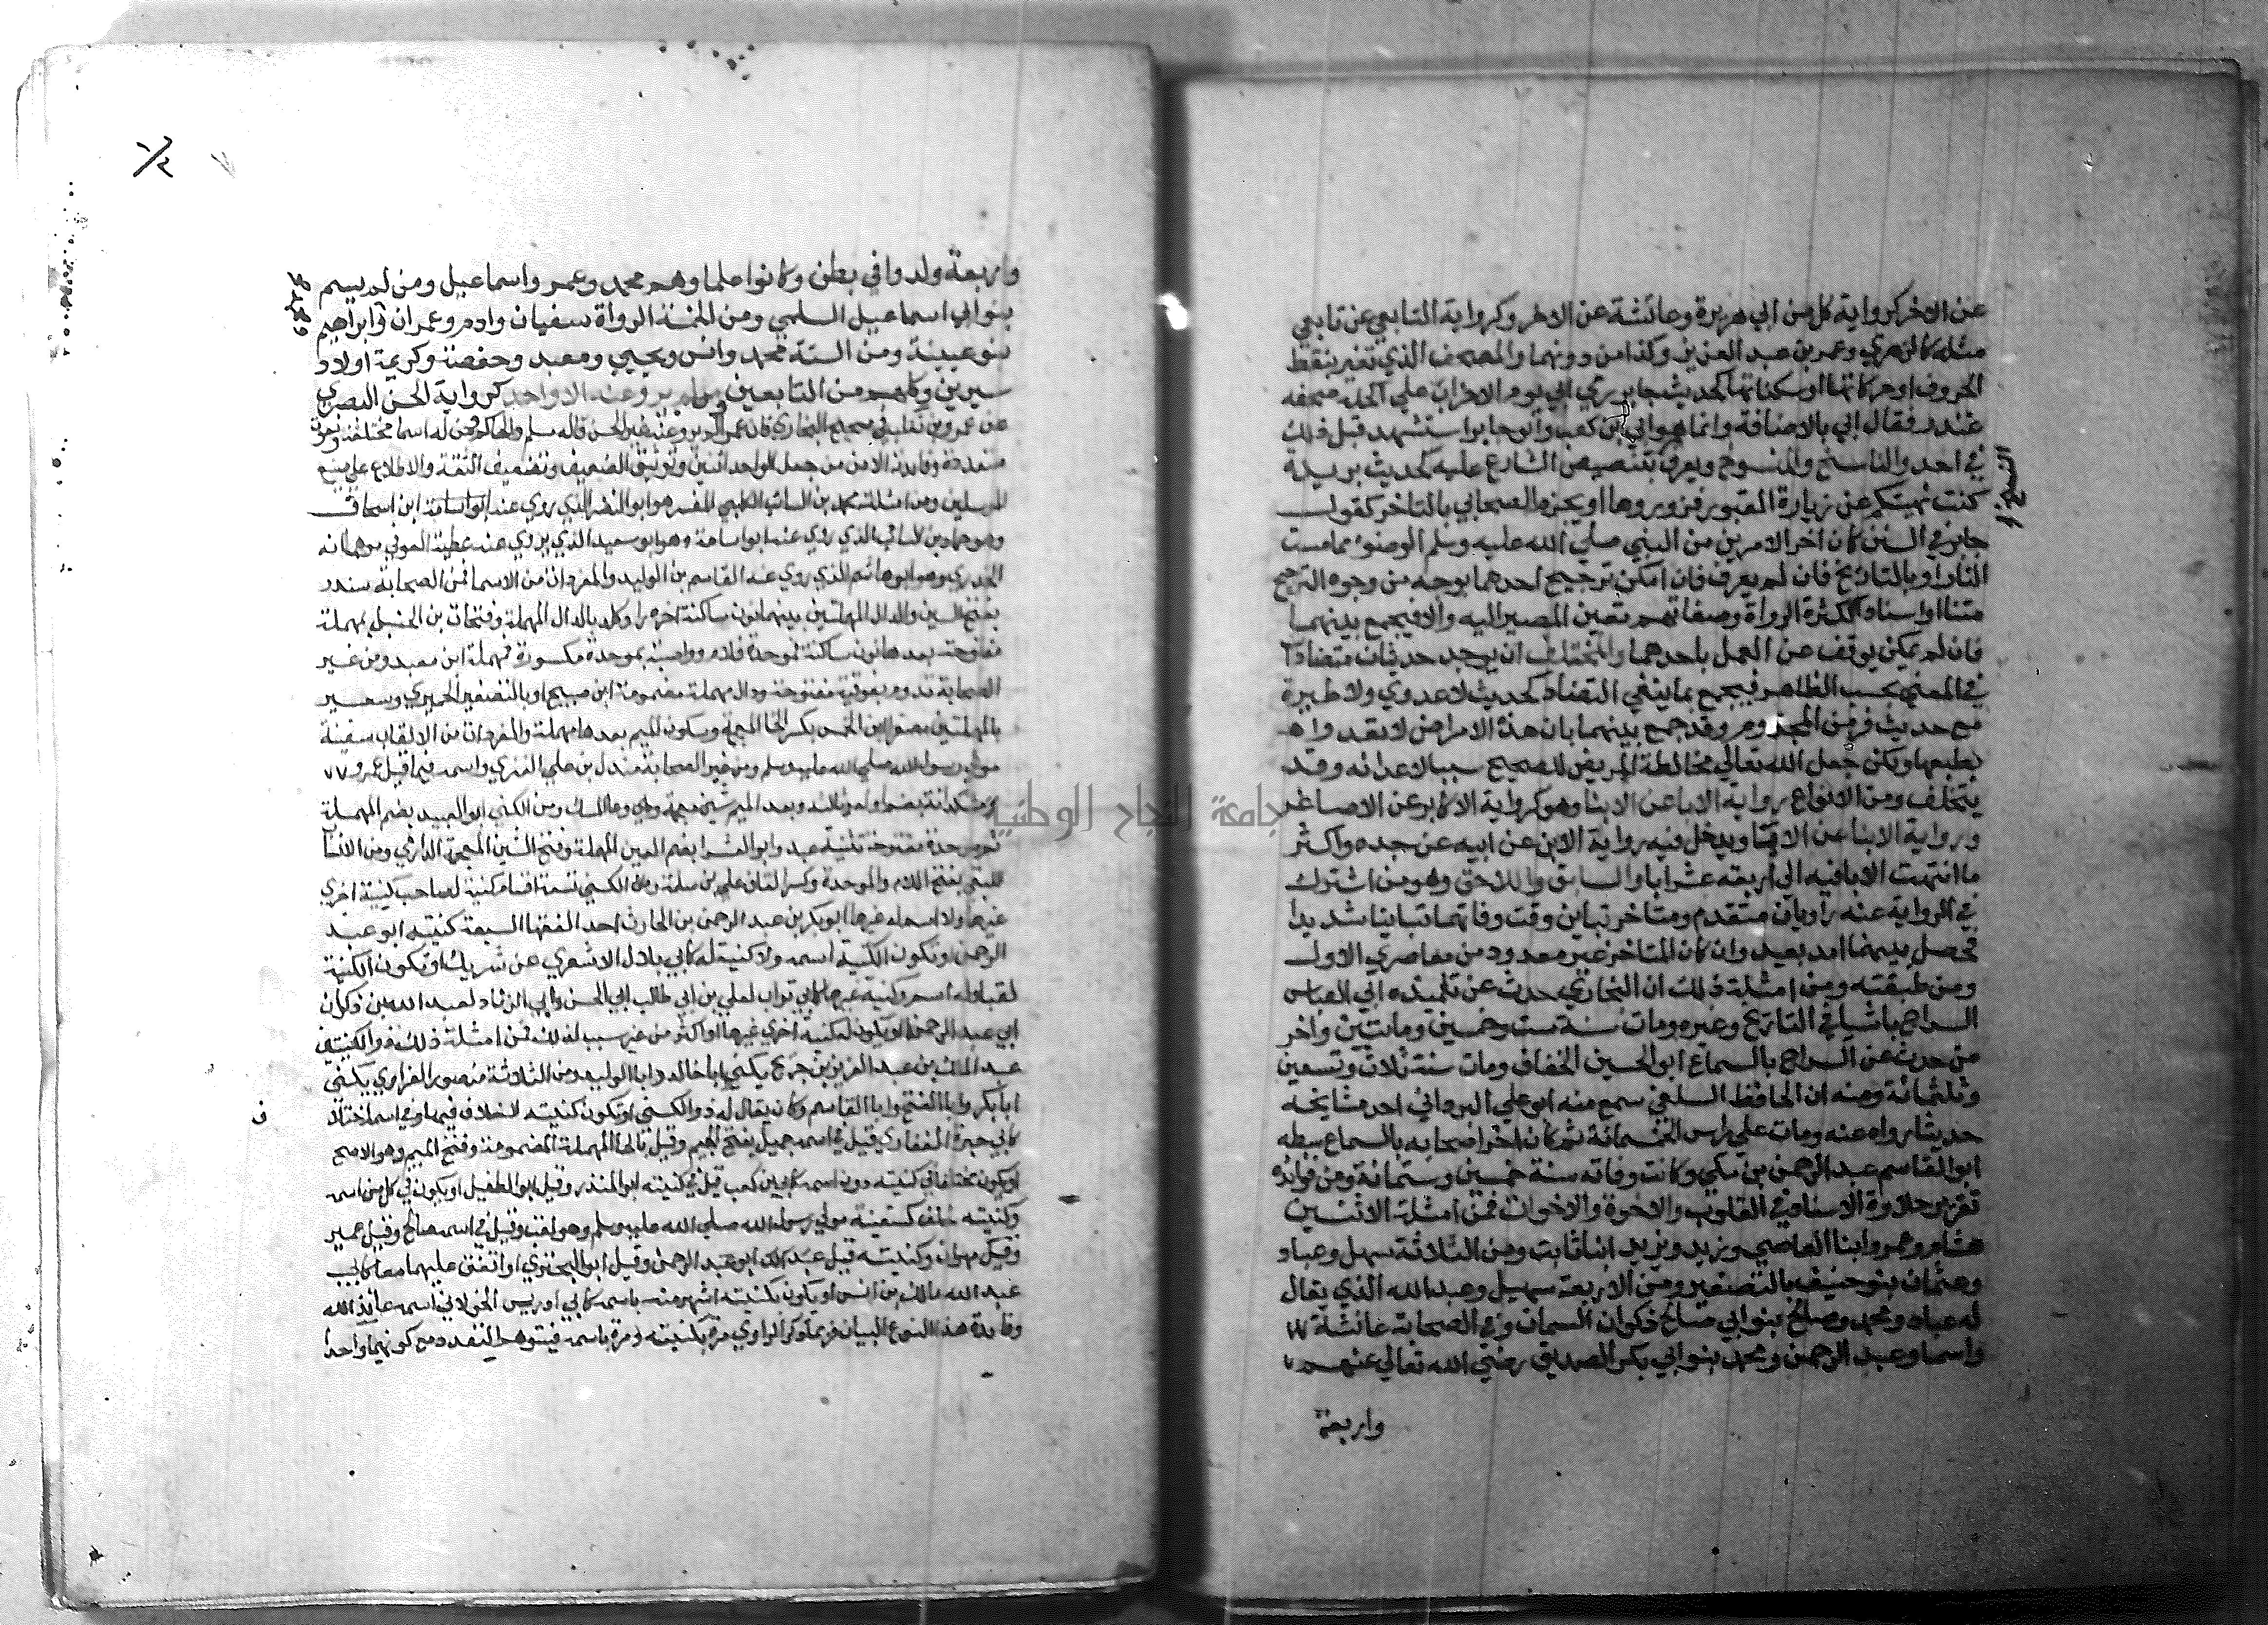 عن الاخر كرواية كل من ابي هريرة وعائشة عن الاخر وكرواية التابعي عن تابعي
مثله كالزهري وعمر بن عبد العزيز وكذا من دونهما والمصحف الذي تغير بنقط
الحروف او حركاتها او سكناتها كحديث جابر رمي ابي يوم الاحزاب علي اكحله صحفه
غندر فقال ابي بالاضافة وانما هو ابي بن كعب وابو جابر استشهد قبل ذلك
في احد والناسخ والمنسوخ ويعرف بتنصيص الشارع عليه كحديث بريدة
كنت نهيتكم عن زيارة القبور فزوروها او بجزم الصحابي بالتاخر كقول
جابر في السنن كان اخر الامرين من النبي صلي الله عليه وسلم الوضوء مما مست
النار او بالتاريخ فان لم يعرف فان امكن ترجيح احدهما بوجه من وجوه الترجيح
متنا او اسنادا ككثرة الرواة وصفاتهم تعين المصير اليه والا فيجمع بينهما
فان لم يمكن يوقف عن العمل باحدهما والمختلف ان يوجد حديثان متضادا
في المعني بحسب الظاهر فيجمع بما ينفي التضاد كحديث لا عدوي ولا طيرة
مع حديث فر من المجذوم وقد جمع بينهما بان هذه الامراض لا تعدوا
بطبعها ولكن جعل الله تعالي مخالطة المريض للصحيح سببا لاعدائه وقد
يتخلف ومن الانواع رواية الابا عن الابنا وهو كرواية الاكابر عن الاصاغر
ورواية الابنا عن الابا ويدخل فيه رواية الابن عن ابيه عن جده واكثر
ما انتهت الابا فيه الي اربعة عشر ابا والسابق واللاحق وهو من اشترك
في الرواية عنه راويان متقدم ومتاخر تباين وقت وفاتهما تباينا شديدا
فحصل بينهما امد بعيد وان كان المتاخر غير معدود من معاصري الاول
ومن طبقته ومن امثلة ذلك ان البخاري حدث عن تلميذه ابي العباس
السراج باشيا في التاريخ وغيره ومات سنة ست وخمسين ومايتين واخر
من حدث عن السراج بالسماع ابو الحسين الخفاف ومات سنة ثلاث وتسعين
وثلثمائة ومنه ان الحافظ السلفي سمع منه ابو علي البرداني احد مشايخه
حديثا رواه عنه ومات علي راس الخمسمائة ثم كان اخر اصحابه بالسماع سبطه
ابو القاسم عبد الرحمن بن مكي وكانت وفاته سنة خمسين وستمائة ومن فوائده
تقرير حلاوة الاسناد في القلوب والاخوة والاخوات فمن امثلة الاثنين
هشام وعمرو ابنا العاصي وزيد ويزيد ابنا ثابت ومن الثلاثة سهل وعباد
وعثمان بنو حنيف بالتصغير ومن الاربعة سهيل وعبد الله الذي يقال
له عباد ومحمد وصالح بنو ابي صالح ذكوان السمان وفي الصحابة عائشة
واسما وعبد الرحمن ومحمد بنو ابي بكر الصديق رضي الله تعالي عنهم
واربعة
واربعة ولدوا في بطن وكانوا علما وهم محمد وعمر واسماعيل ومن لم يسم
بنو ابي اسماعيل السلمي ومن الخمسة الرواة سفيان وادم وعمران وابراهيم
بنو عيينة ومن الستة محمد وانس ويحيي ومعبد وحفصة وكريمة اولاد
سيرين وكلهم من التابعين ومن لم يرو عنه الا واحد كرواية الحسن البصري
عن عمرو بن تغلب في صحيح البخاري فان عمرا لم يرو عنه غير الحسن قاله مسلم والحاكم ومن له اسما مختلفة ونعوت
متعددة وفايدته الامن من جعل الواحد اثنين وتوثيق الضعيف وتضعيف الثقة والاطلاع علي صنيع
المدلسين ومن امثلته محمد بن السائب الكلبي المفسر هو ابو النضر الذي روي عنه ابن اسحاق
وهو حماد بن السائب الذي روي عنه ابو اسامة وهو ابو سعيد الذي يروي عنه عطية العوفي موهما انه
الخدري وهو ابو هشام الذي روي عنه القاسم بن الوليد والمفردات من الاسما فمن الصحابة سندر
بفتح السين والدال المهملتين بينهما نون ساكنة اخره را وكلدة بالدال المهملة وفتحات بن الحنبل بمهملة
مفتوحة بعدها نون ساكنة فموحدة فلام ووابصة بموحدة مكسورة فمهملة ابن معبد ومن غير
الصحابة تدوم بفوقية مفتوحة ودال مهملة مضمومة ابن صبيح او بالتصغير الحميري وسعير
بالمهملتين مصغرا بن الخمس بكسر الخا المعجمة وسكون الميم بعدها مهملة والمفردات من الالقاب سفينة
مولي رسول الله صلي الله عليه وسلم ومن غير الصحابة مندل بن علي العنزي واسمه فيما قيل عمرو
ومشكدانة بضم اوله وثالثه وبعد الميم شين معجمة ومن الكني ابو العبيد بضم المهملة
ثم موحدة مفتوحة تثنية عبد وابو العشرا بضم العين المهملة وفتح الشين المعجمة الدارمي ومن الانساب
اللبقي بفتح اللام والموحدة وكسر القاف علي بن سلمة ومن الكني تسعة اقسام كنية لصاحب كنية اخري
غيرها ولا اسم له غيرها ابو بكر بن عبد الرحمن بن الحارث احد الفقها السبعة كنيته ابو عبد
الرحمن او تكون الكنية اسمه ولا كنية له كابي بلال الاشعري عن شريك او تكون الكنية
لقبا وله اسم وكنية غيرها كابي تراب لعلي بن ابي طالب ابي الحسن وابي الزناد لعبد الله بن ذكوان
ابي عبد الرحمن او يكون له كنية اخري غيرها او اكثر من غير سبب لذلك فمن امثلة ذلك ذو الكنيتين
عبد الملك بن عبد العزيز بن جريج يكني ابا خالد وابا الوليد ومن الثلاثة منصور الفراوي يكني
ابا بكر وابا الفتح وابا القاسم وكان يقال له ذو الكني او تكون كنيته لا خلاف فيها وفي اسمه اختلاف
كابي بصرة الغفاري قيل في اسمه جميل بفتح الجيم وقيل بالحا المهملة المضمومة وفتح الميم وهو الاصح
او يكون مختلفا في كنيته دون اسمه كابي بن كعب قيل في كنيته ابو المنذر وقيل ابو الطفيل او يكون في كل من اسمه
وكنيته خلف كسفينة مولي رسول الله صلي الله عليه وسلم وهو لقب وقيل في اسمه صالح وقيل عمير
وقيل مهران وكنيته قيل ابو عبد الرحمن وقيل ابو البختري او اتفق عليهما معا كابي
عبد الله مالك بن انس او يكون بكنيته اشهر منه باسمه كابي ادريس الخولاني اسمه عائذ الله
وفايدة هذا النوع البيان فربما ذكر الراوي مرة بكنيته ومرة باسمه فيتوهم التعدد مع كونهما واحدا
جامعة النجاح الوطنية